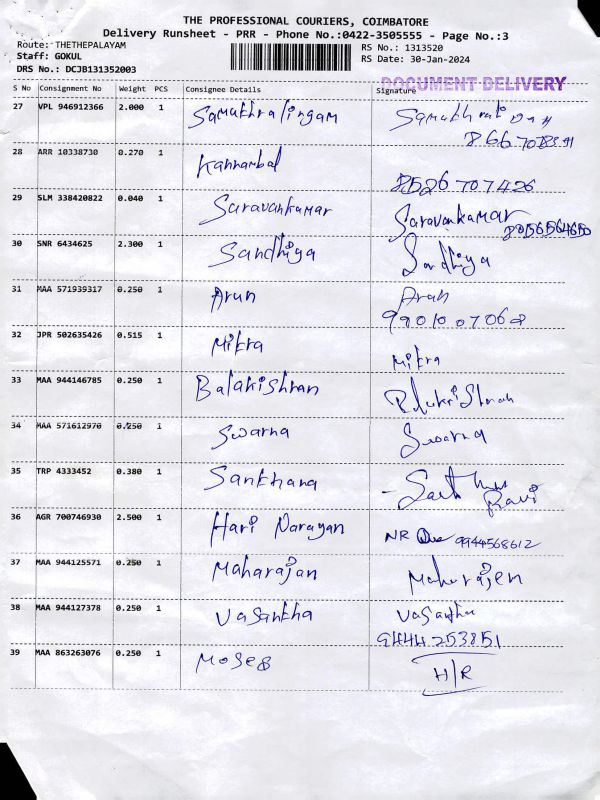 THE PROFESSIONAL COURIERS, COIMBATORE
Delivery Runsheet - PRR - Phone No.:0422-3505555 - Page No.:3
Route: THETHEPALAYAM
RS No.: 1313520
Staff: GOKUL
RS Date: 30-Jan-2024
DRS No.: DCJB131352003
DOCUMENT DELIVERY
S No Consignment No Weight PCS Consignee Details Signature
27 VPL 946912366 2.000 1 Samuthralingam
28 ARR 10338730 0.270 1 Kannambal
8526707426
29 SLM 338420822 0.040 1 Saravankumar Saravankumar
30 SNR 6434625 2.300 1 Sandhiya Sandhiya
31 MAA 571939317 0.250 1 Arun Arun
99010007068
32 JPR 502635426 0.515 1 Mitra Mitra
33 MAA 944146785 0.250 1 Balakishran
34 MAA 571612970 0.250 1 Swarna Swarna
35 TRP 4333452 0.380 1 Sankhara
36 AGR 700746930 2.500 1 Hari Narayan NR 9944568612
37 MAA 944125571 0.250 1 Maharajan Maharajen
38 MAA 944127378 0.250 1 Vasantha Vasantha
9444253851
39 MAA 863263076 0.250 1 Moses
H/R